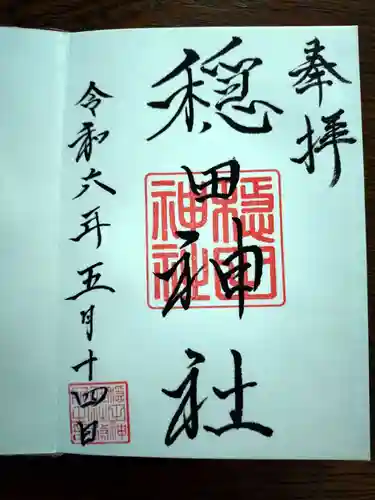 奉拝
穏田神社
穏田神社
令和六年五月十四日